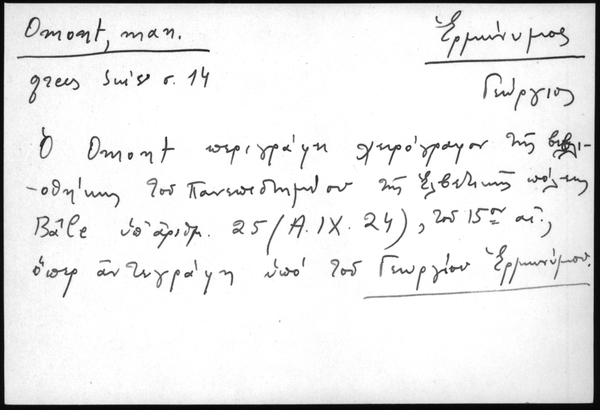 Omont, man.
Ἑρμώνυμος
grecs Suis. σ. 14
Γεώργιος
Ὁ Omont περιγράφει χειρόγραφον τῆς βιβλι-
-οθήκης τοῦ Πανεπιστημίου τῆς Ἑλβετικῆς πόλεως
Bâle ὑπ' ἀριθμ. 25 (A.IX.24), τοῦ 15ου αἰ.,
ὅπερ ἀντεγράφη ὑπό τοῦ Γεωργίου Ἑρμωνύμου.